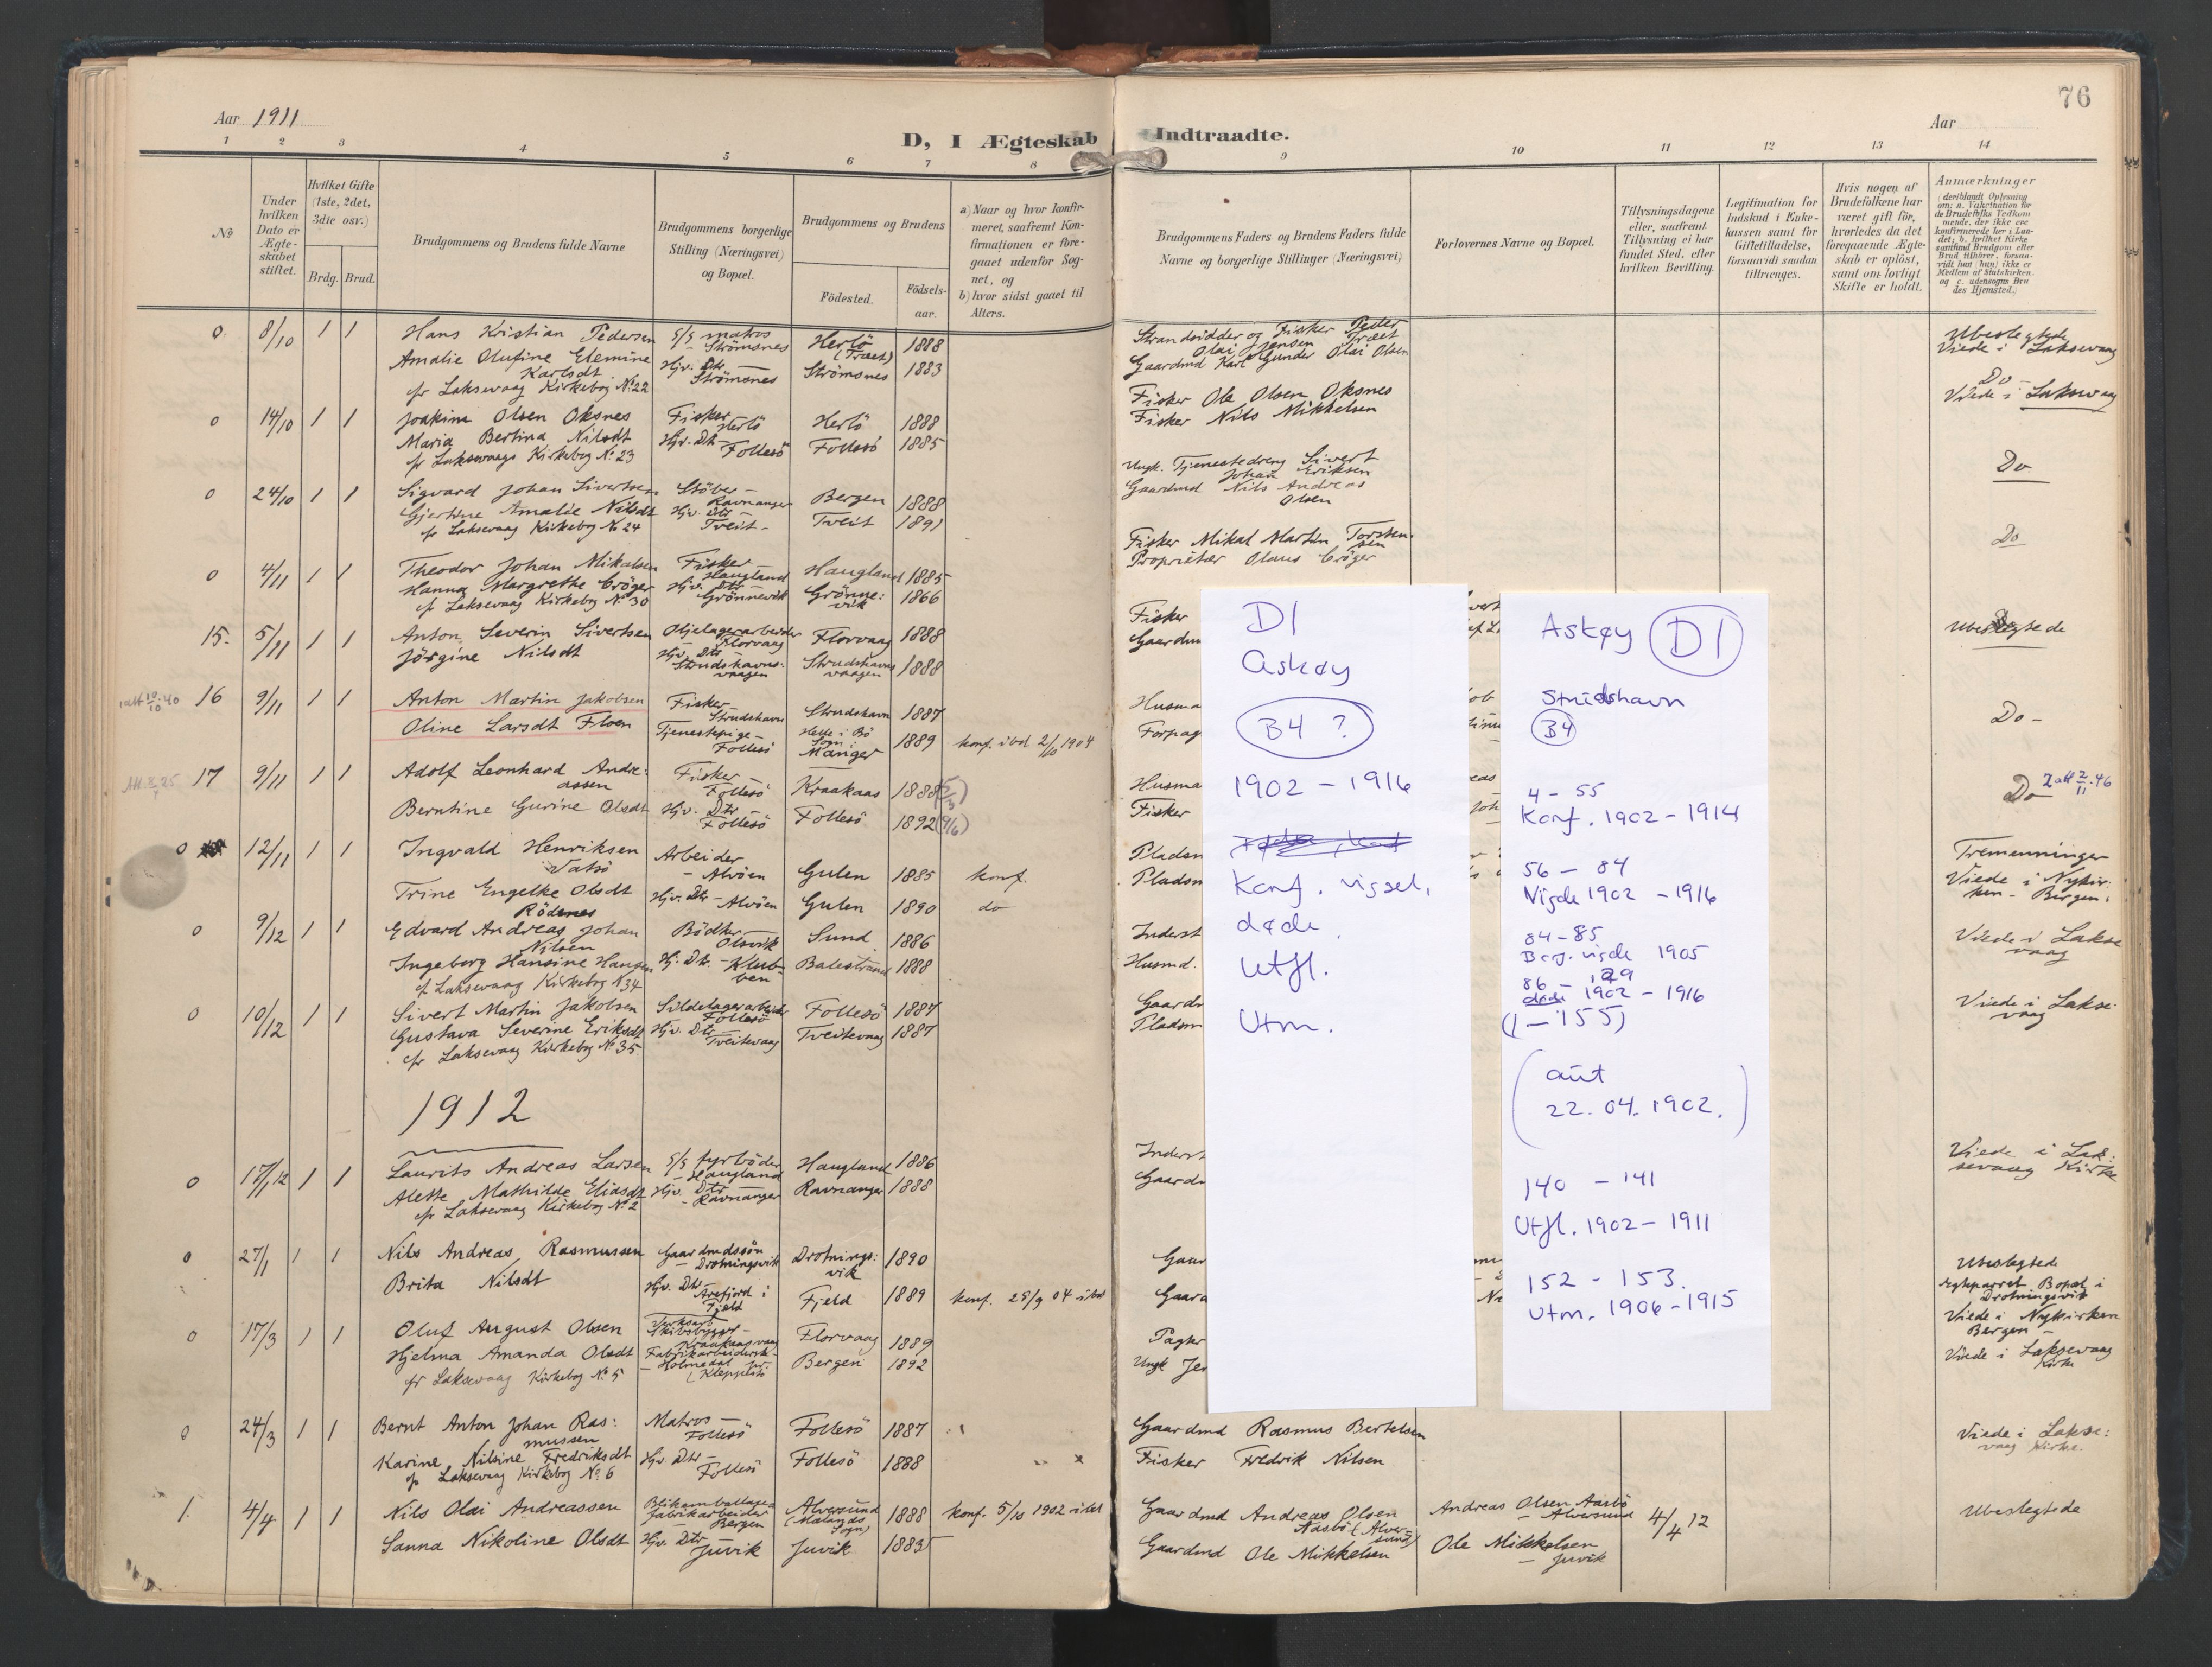 76
Aar 1911
D, I Ægteskab Indtraadte.
Aar
1 2 3 4 5 6 7 8 9 10 11 12 13 14
No
Under hvilken Dato er Ægteskabet stiftet.
Hvilket Gifte (1ste, 2det, 3die osv.)
Brdg. Brud.
Brudgommens og Brudens fulde Navne
Brudgommens borgerlige Stilling (Næringsvei) og Bopæl.
Brudgommens og Brudens
Födested.
Födsels-aar.
a) Naar og hvor konfirmeret, saafremt Konfirmationen er foregaaet udenfor Sognet, og
b) hvor sidst gaaet til Alters.
Brudgommens Faders og Brudens Faders fulde Navne og borgerlige Stillinger (Næringsvei)
Forlovernes Navne og Bopæl.
Tillysningsdagene eller, saafremt Tillysning ei har fundet Sted, efter hvilken Bevilling.
Legitimation for Indskud i Enkekassen samt for Giftetilladelse, forsaavidt saadan tiltrænges.
Hvis nogen af Brudefolkene har været gift för, hvorledes da det foregaaende Ægteskab er oplöst, samt om lovligt Skifte er holdt.
Anmærkninger
0 8/10 1 1 Hans Kristian Pedersen
S/S matros - Strömsnes
Herlö (Træet) 1888
Strandsidder og Fisker Peder Olai Jensen Træet
Ubeslegtede
Viede i Laksevaag
Amalie Olufine Elemine Karlsdt
Hjv. Dtr - Strömsnes
Strömsnes 1883
Gaardmd Karl Gunder Olai Olsen
cfr Laksevaag Kirkebog No 22
0 14/10 1 1 Joakim Olsen Oksnes
Fisker Herlö
Herlö 1888
Fisker Ole Olsen Oksnes
Do
Viede i Laksevaag
Maria Bertina Nilsdt
Hjv. Dtr - Follesö
Follesö 1885
Fisker Nils Mikkelsen
cfr Laksevaags Kirkebog No 23
0 24/10 1 1 Sigvard Johan Sivertsen
Stöber - Ravnanger
Bergen 1888
Ungk. Tjenestedreng Sivert Johan Eriksen
Do
Gjertine Amalie Nilsdt
Hjv. Dtr - Tveit
Tveit 1891
Gaardmd Nils Andreas Olsen
cfr Laksevaag Kirkebog No 24
0 4/11 1 1 Theodor Johan Mikalsen
Fisker - Haugland
Haugland 1885
Fisker Mikal Martin Torstensen
Do
Hanna Margrethe Cröger
Hjv. Dtr Grönnevik
Grönnevik 1866
Proprietær Olaus Cröger
cfr Laksevaag Kirkebog No 30
15. 5/11 1 1 Anton Severin Sivertsen
Oljelagerarbeider Florvaag
Florvaag 1888
Fisker
Ubeslegtede
Jörgine Nilsdt
Hjv. Dtr Strudshavnsvaagen
Strudshavnsvaagen 1888
Gaardm
16 9/11 1 1 Anton Martin Jakobsen
Fisker - Strudshavn
Strudshavn 1887
Husma
Do -
Oline Larsdt Floen
Tjenestepige - Follesö
Helle i Bö Sogn Manger 1889
konf. ibd 2/10 1904
Forpag
17 9/11 1 1 Adolf Leonhard Andreassen
Fisker - Follesö
Kraakaas 1888 (5/3)
Husma
Do
2 att 2/11.46
Berntine Gurine Olsdt
Hjv. Dtr Follesö
Follesö 1892 (9/6)
Fisker
0 12/11 1 1 Ingvald Henriksen
Arbeider - Alvöen
Gulen 1885 konf.
Pladsm
Tremenninger
Viede i Nykirken - Bergen.
Trine Engelke Olsdt Rödenes
Hjv. Dtr - Alvöen
Gulen 1890 do
Pladsm
0 9/12 1 1 Edvard Andreas Johan Nilsen
Bödker - Olsvik
Sund 1886
Inderst
Viede i Laksevaag
Ingeborg Hansine Haugen
Hj. Dtr. - Klubben
Balestrand 1888
Husmd.
cf Laksevaag Kirkebog N 34
0 10/12 1 1 Sivert Martin Jakobsen
Sildelagerarbeider Follesö
Follesö 1887
Gaardm
Viede i Laksevaag
Gustava Severine Eriksdt
Hjv. Dtr Tveitevaag
Tveitevaag 1887
Pladsm
cfr Laksevaag Kirkebog No 35
1912
0 17/1 12 1 1 Laurits Andreas Larsen
S/S fyrböder - Haugland
Haugland 1886
Inderst
Viede i Laksevaag Kirke
Alette Mathilde Eliasdt
Hjv. Dtr - Ravnanger
Ravnanger 1888
Gaardm
cfr Laksevaag Kirkebog No 2
0 27/1 1 1 Nils Andreas Rasmussen
Gaardmdssön - Drotningsvik
Drotningsvik 1890
Gaar
Ubeslegtede
Brita Nilsdt
Hjv. Dtr - Arefjord i Fjeld
Fjeld 1889
konf. 25/9 04 ibd
Gaar
Egteparret Bopæl i Drotningsvik
Viede i Nykirken Bergen -
0 17/3 1 1 Oluf August Olsen
Skibsbygger - Kraakaasvaag
Florvaag 1889
Pagter
Viede i Laksevaag Kirke
Hjelma Amanda Olsdt
Fabrikarbeidersk - Holmedal pr. Kleppestö
Bergen 1892
Ungk Jen
cfr Laksevaag Kirkebog No 5
0 24/3 1 1 Bernt Anton Johan Rasmussen
Matros - Follesö
Follesö 1887
Gaardmd Rasmus Bertelsen
Viede i Laksevaag Kirke.
Karine Nilsine Fredriksdt
Hjv. Dtr - Follesö
Follesö 1888
Fisker Fredrik Nilsen
cfr Laksevaag Kirkebog No 6
1. 4/4 1 1 Nils Olai Andreassen
Blikemballagefabrikarbeider Bergen
Alversund (Mælands Sogn) 1888
konf. 5/10 1902 ibd
Gaardmd Andreas Olsen Aasbö (Alversund)
Andreas Olsen Aasbö - Alversund
4/4 12
Ubeslegtede
Sanna Nikoline Olsdt
Hjv. Dtr Juvik
Juvik 1885
Gaardmd Ole Mikkelsen
Ole Mikkelsen - Juvik
D1
Askøy
B4 ?
1902 - 1916
Konf. vigsel,
døde
Utfl.
Utm.
Askøy D1
Strudshavn
B4
4 - 55
Konf. 1902 - 1914
56 - 84
Vigde 1902 - 1916
84 - 85
Borg. vigde 1905
86 - 129
døde 1902 - 1916
(1 - 155)
(aut
22.04.1902.)
140 - 141
Utfl. 1902 - 1911
152 - 153.
Utm. 1906 - 1915